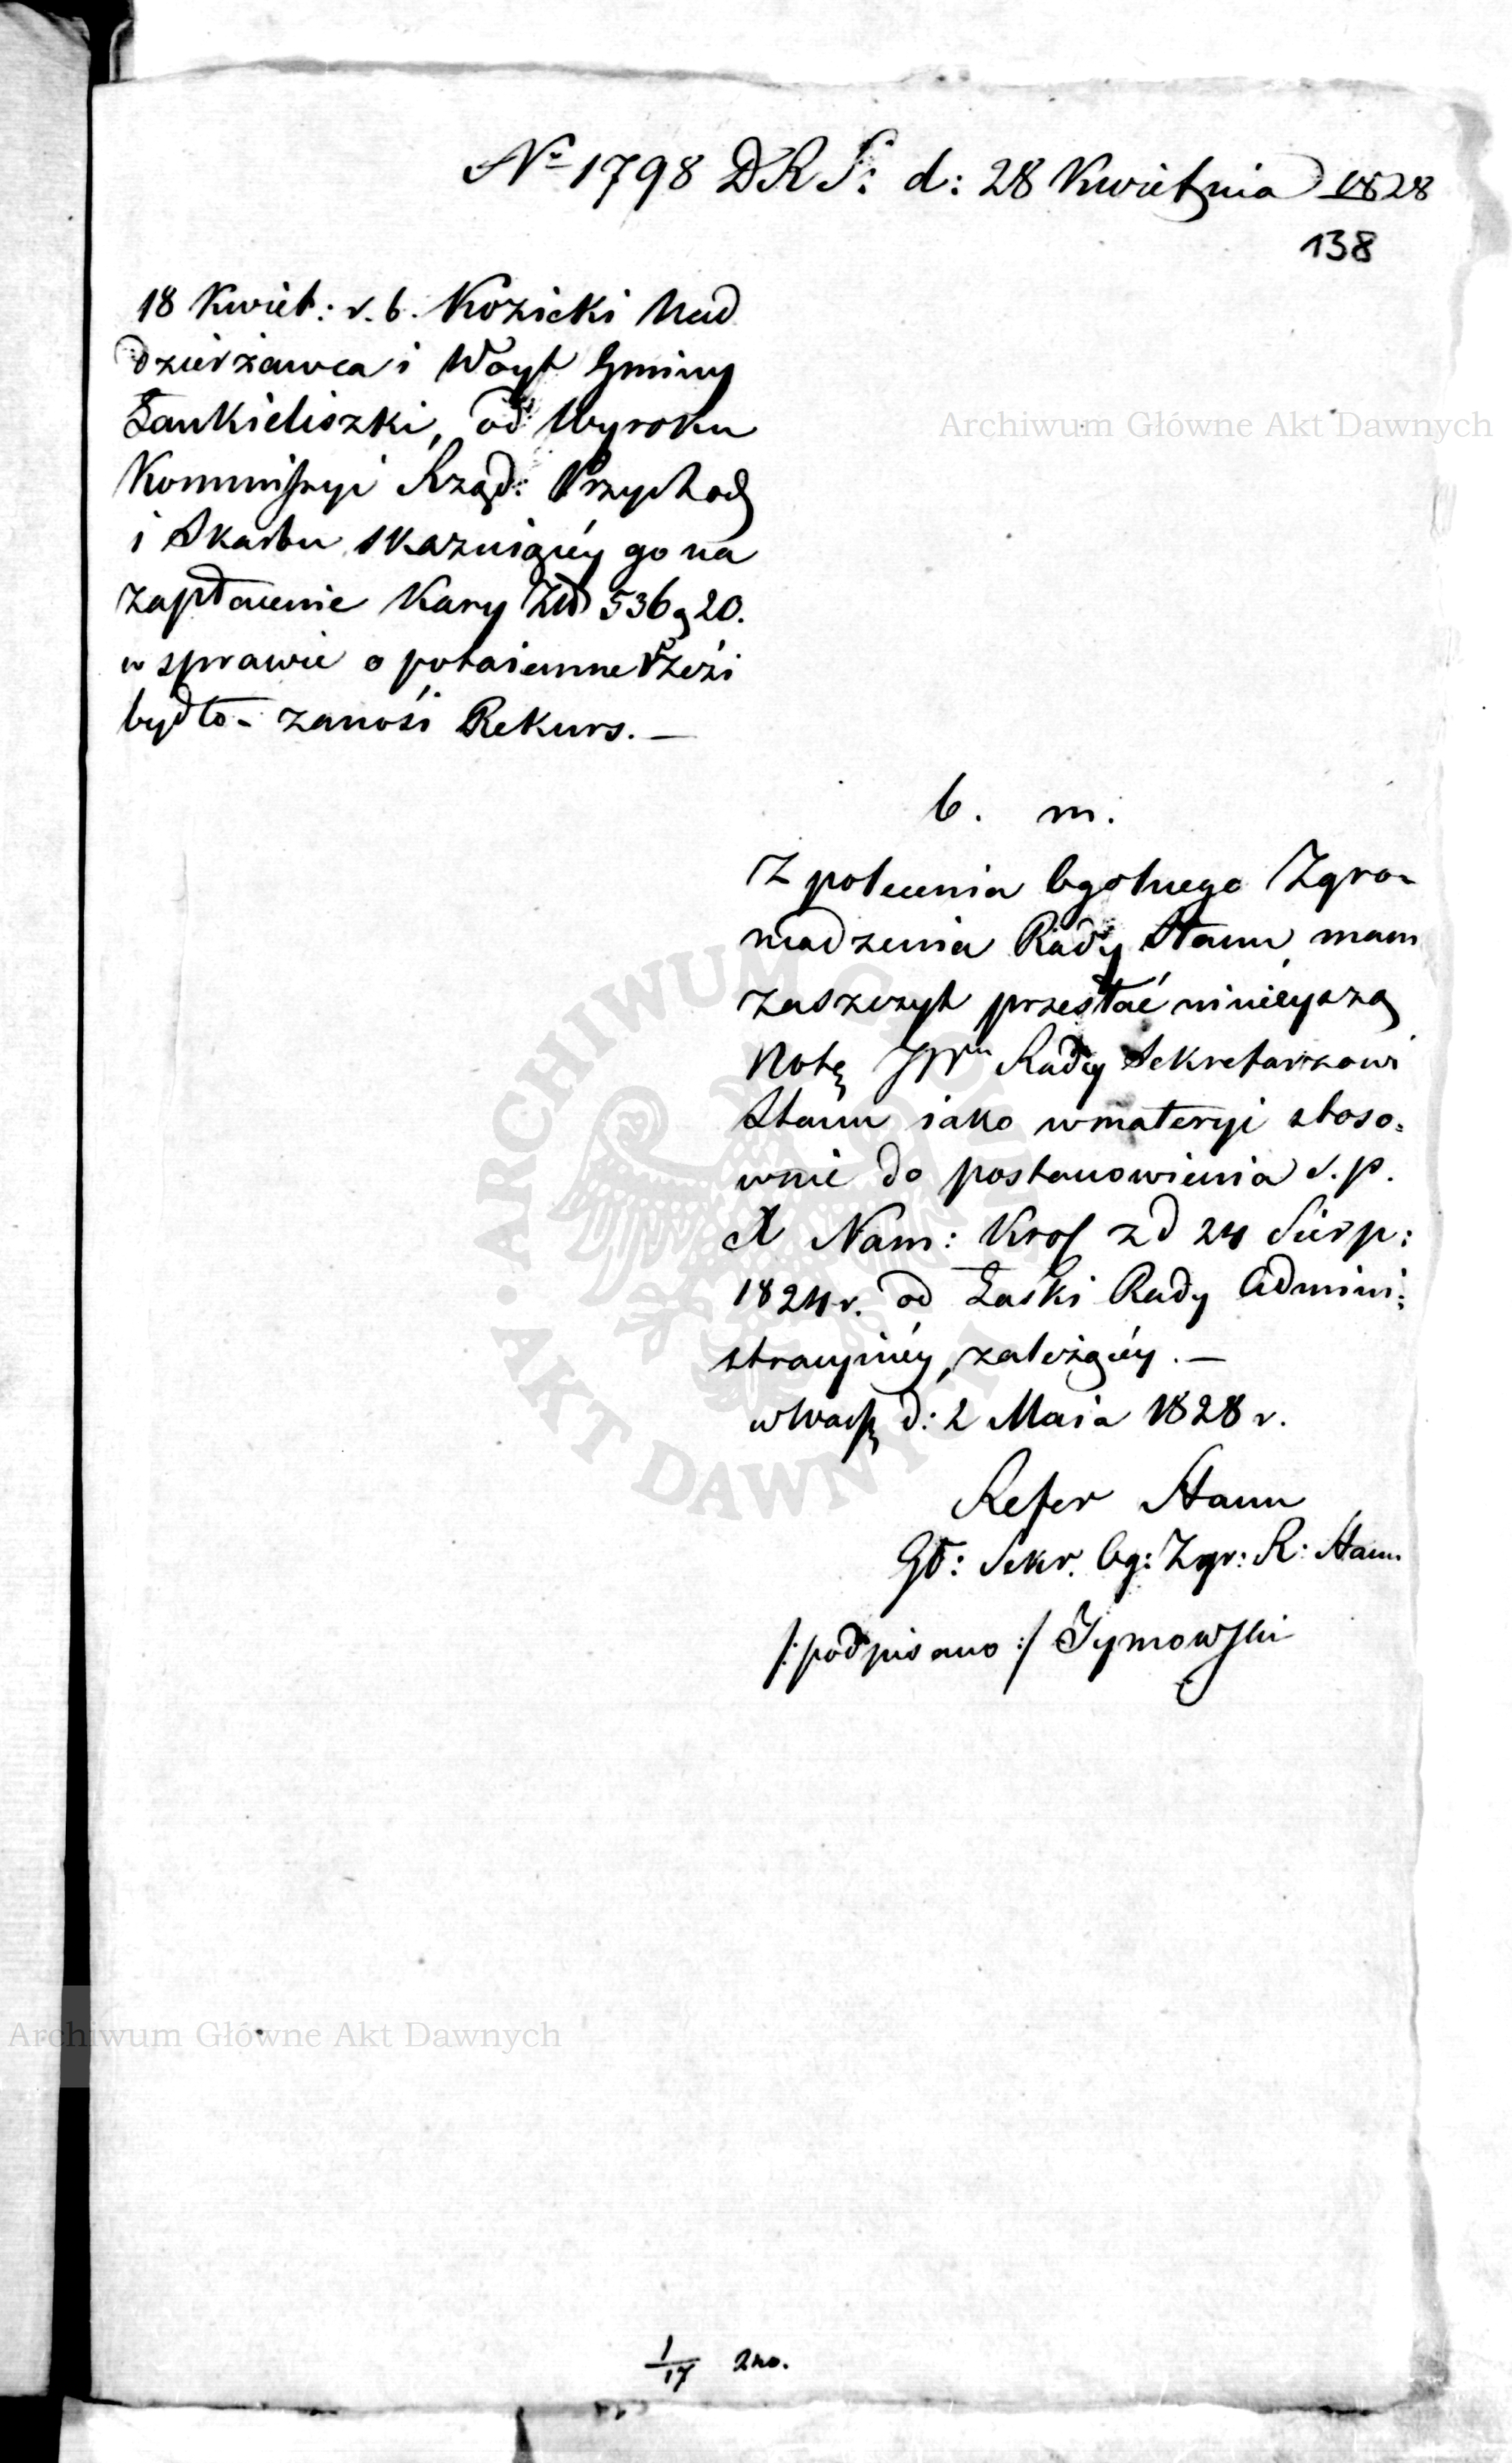 No 1798 D R S: d: 28 Kwietnia 1828
138
18 Kwiet: r. b. Kozicki Nad
dzierżawca i Woyt Gminy
Łankieliszki, od Wyroku
Kommissyi Rząd: Przychod
i Skarbu skazuiącéy go na
zapłacenie Kary Złł 536 g 20.
w sprawie o potaiemne rzezi
bydło - zanosi Rekurs. —
b. m.
Z polecenia Ogolnego Zgro=
madzenia Rady Stanu mam
zaszczyt przesłać ninieyszą
Notę JW Radcy Sekretarzowi
Stanu iako w materyi stoso=
wnie do postanowienia ś. p.
X Nam: Krol z d 24 Sierp:
1824 r. od Łaski Rady Admini=
stracyinéy zależącéy. —
w Warsz d: 2 Maia 1828 r.
Refer Stanu
Gł: Sekr. Og: Zgr: R: Stanu
/: podpisano :/ Tymowski
1/17
Archiwum Główne Akt Dawnych
Archiwum Główne Akt Dawnych
ARCHIWUM GŁÓWNE • AKT DAWNYCH •